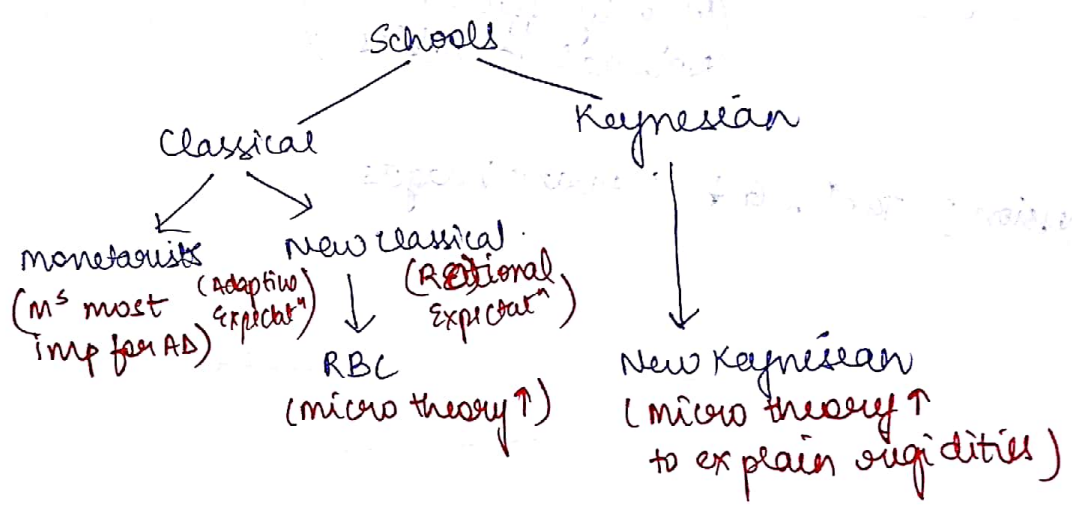 Schools
Classical
Keynesian
Monetarists
(Mˢ most
imp for AD)
(Adaptive
Expectatⁿ)
New Classical
(Rational
Expectatⁿ)
RBC
(micro theory↑)
New Keynesian
(micro theory↑
to explain rigidities)